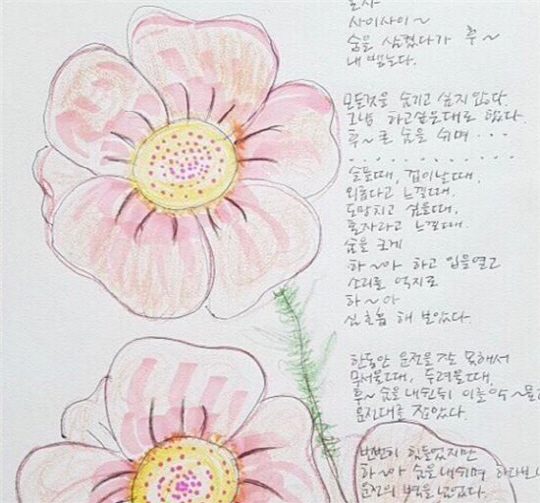 사이사이~
숨을 삼켰다가 후~
내뱉는다.
모든것을 숨기고 싶지 않다.
그냥 하고싶은대로 했다.
후~ 큰 숨을 쉬며 . . .
. . . . . . . . . . . . . .
슬플때, 겁이날때,
외롭다고 느낄때,
도망치고 싶을때,
혼자라고 느낄때.
숨을 크게
하~아 하고 입을열고
소리를 억지로
하~아
심호흡 해 보았다.
한동안 운전을 잘 못해서
무서울때, 두려울때,
후~ 숨을 내쉰뒤 이를 악~물
운전대를 잡았다.
힘들었지만
하~아 숨을 내쉬며 하다보
운전의 벽을 넘었다.